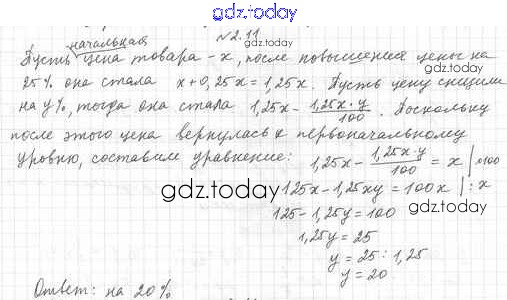 gdz.today
№2.11
начальная
Пусть цена товара - x, после повышения цены на
25% она стала x+0,25x=1,25x. Пусть цену снизили
на y%, тогда она стала 1,25x - 1,25x·y/100. Поскольку
после этого цена вернулась к первоначальному
уровню, составим уравнение: 1,25x - 1,25x·y/100 = x |·100
125x - 1,25xy = 100x |:x
125 - 1,25y = 100
1,25y = 25
y = 25 : 1,25
y = 20
Ответ: на 20%
gdz.today
gdz.today
gdz.today
gdz.today
gdz.today